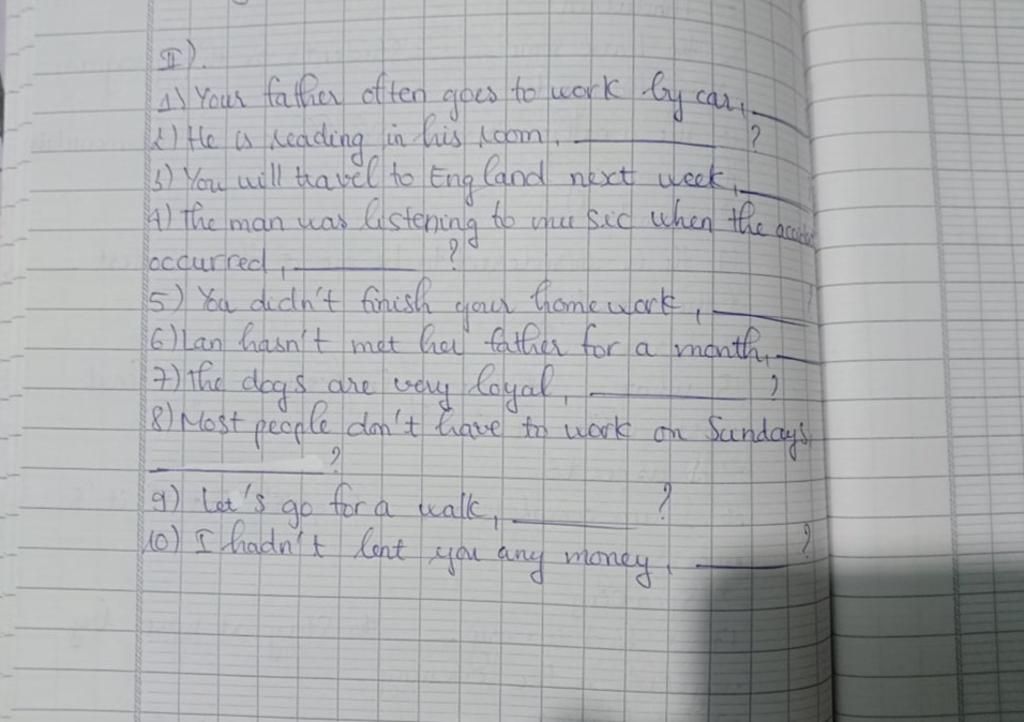 II).
1) Your father often goes to work by car, ____
2) He is reading in his room, ________ ?
3) You will travel to England next week, ____
4) The man was listening to music when the accident
occurred, ________ ?
5) You didn't finish your homework, ______ ?
6) Lan hasn't met her father for a month, ____
7) The dogs are very loyal, ________ ?
8) Most people don't have to work on Sundays,
________ ?
9) Let's go for a walk, ________ ?
10) I hadn't lent you any money, ______ ?